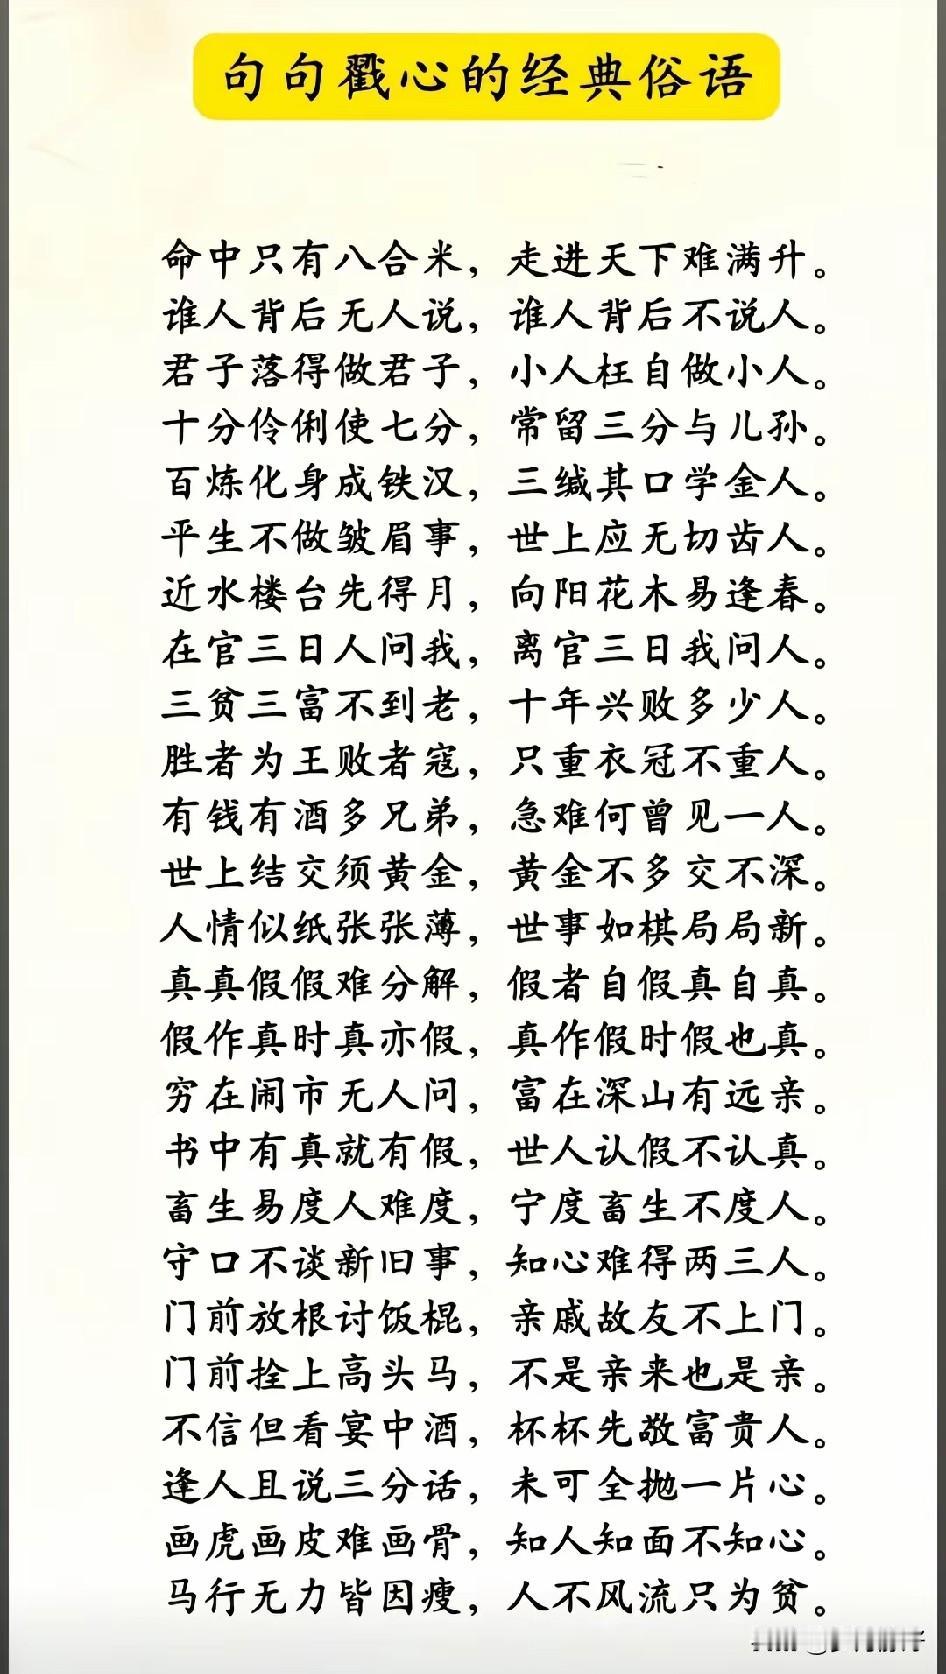 句句戳心的经典俗语
命中只有八合米，走进天下难满升。
谁人背后无人说，谁人背后不说人。
君子落得做君子，小人枉自做小人。
十分伶俐使七分，常留三分与儿孙。
百炼化身成铁汉，三缄其口学金人。
平生不做皱眉事，世上应无切齿人。
近水楼台先得月，向阳花木易逢春。
在官三日人问我，离官三日我问人。
三贫三富不到老，十年兴败多少人。
胜者为王败者寇，只重衣冠不重人。
有钱有酒多兄弟，急难何曾见一人。
世上结交须黄金，黄金不多交不深。
人情似纸张张薄，世事如棋局局新。
真真假假难分解，假者自假真自真。
假作真时真亦假，真作假时假也真。
穷在闹市无人问，富在深山有远亲。
书中有真就有假，世人认假不认真。
畜生易度人难度，宁度畜生不度人。
守口不谈新旧事，知心难得两三人。
门前放根讨饭棍，亲戚故友不上门。
门前拴上高头马，不是亲来也是亲。
不信但看宴中酒，杯杯先敬富贵人。
逢人且说三分话，未可全抛一片心。
画虎画皮难画骨，知人知面不知心。
马行无力皆因瘦，人不风流只为贫。